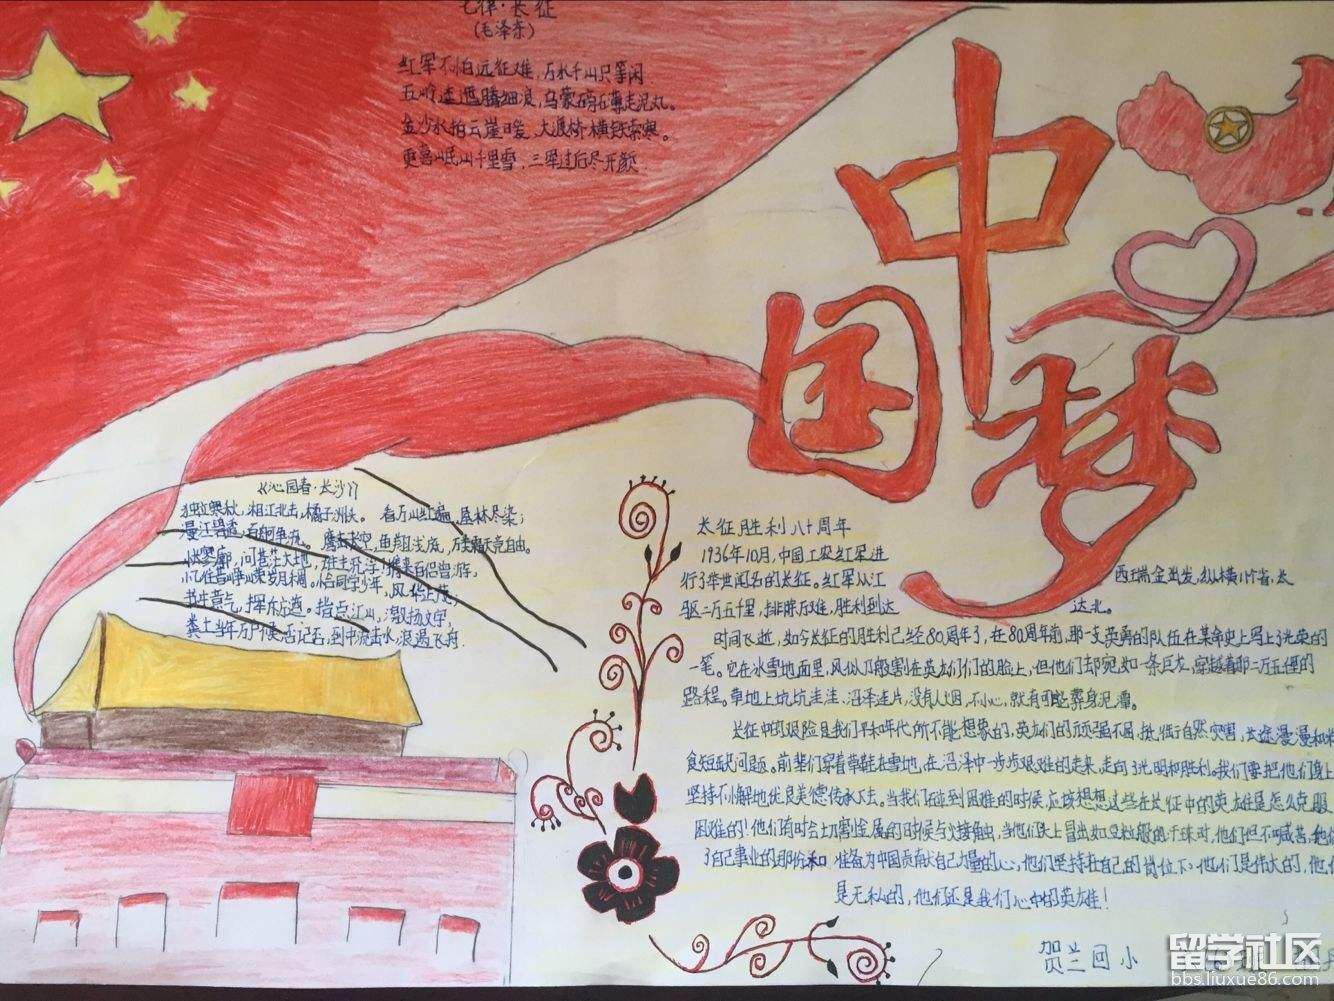 七律·长征
(毛泽东)
红军不怕远征难，万水千山只等闲
五岭逶迤腾细浪，乌蒙磅礴走泥丸。
金沙水拍云崖暖，大渡桥横铁索寒。
更喜岷山千里雪，三军过后尽开颜
中国梦
《沁园春·长沙》
独立寒秋，湘江北去，橘子洲头。看万山红遍，层林尽染；
漫江碧透，百舸争流。鹰击长空，鱼翔浅底，万类霜天竞自由。
怅寥廓，问苍茫大地，谁主沉浮？携来百侣曾游，
忆往昔峥嵘岁月稠。恰同学少年，风华正茂；
书生意气，挥斥方遒。指点江山，激扬文字，
粪土当年万户侯。曾记否，到中流击水，浪遏飞舟
长征胜利八十周年
1936年10月，中国工农红军进
行了举世闻名的长征。红军从江西瑞金出发，纵横11个省，长
驱二万五千里，排除万难，胜利到达 达北。
时间飞逝，如今长征的胜利已经80周年了，在80周年前，那一支英勇的队伍在革命史上写上了光荣的
一笔。它在冰雪地面里，风似刀般割在英雄们的脸上，但他们却宛如一条巨龙，穿越着那二万五里的
路程。草地上坑坑洼洼，沼泽连片，没有人烟，不小心，就有可能葬身泥潭。
长征中的艰险是我们平和年代所不能想象的，英雄们的顽强不屈，抵抗自然灾害，长途漫漫和粮
食短缺问题。前辈们穿着草鞋在雪地，在沼泽中一步步艰难的走来，走向了光明和胜利。我们要把他们身上
坚持不懈地优良美德传承下去。当我们碰到困难的时候，应该想想这些在长征中的英雄是怎么克服
困难的！他们有时会切割金属的时候与火接触，当他们头上冒出如豆粒般的汗珠时，他们但不喊苦，
了自己事业的那份和 准备为中国贡献自己力量的心，他们坚持在自己的岗位下、他们是伟大的，他们
是无私的，他们还是我们心中的英雄！
贺兰回小
留学社区
bbs.liuxue86.com